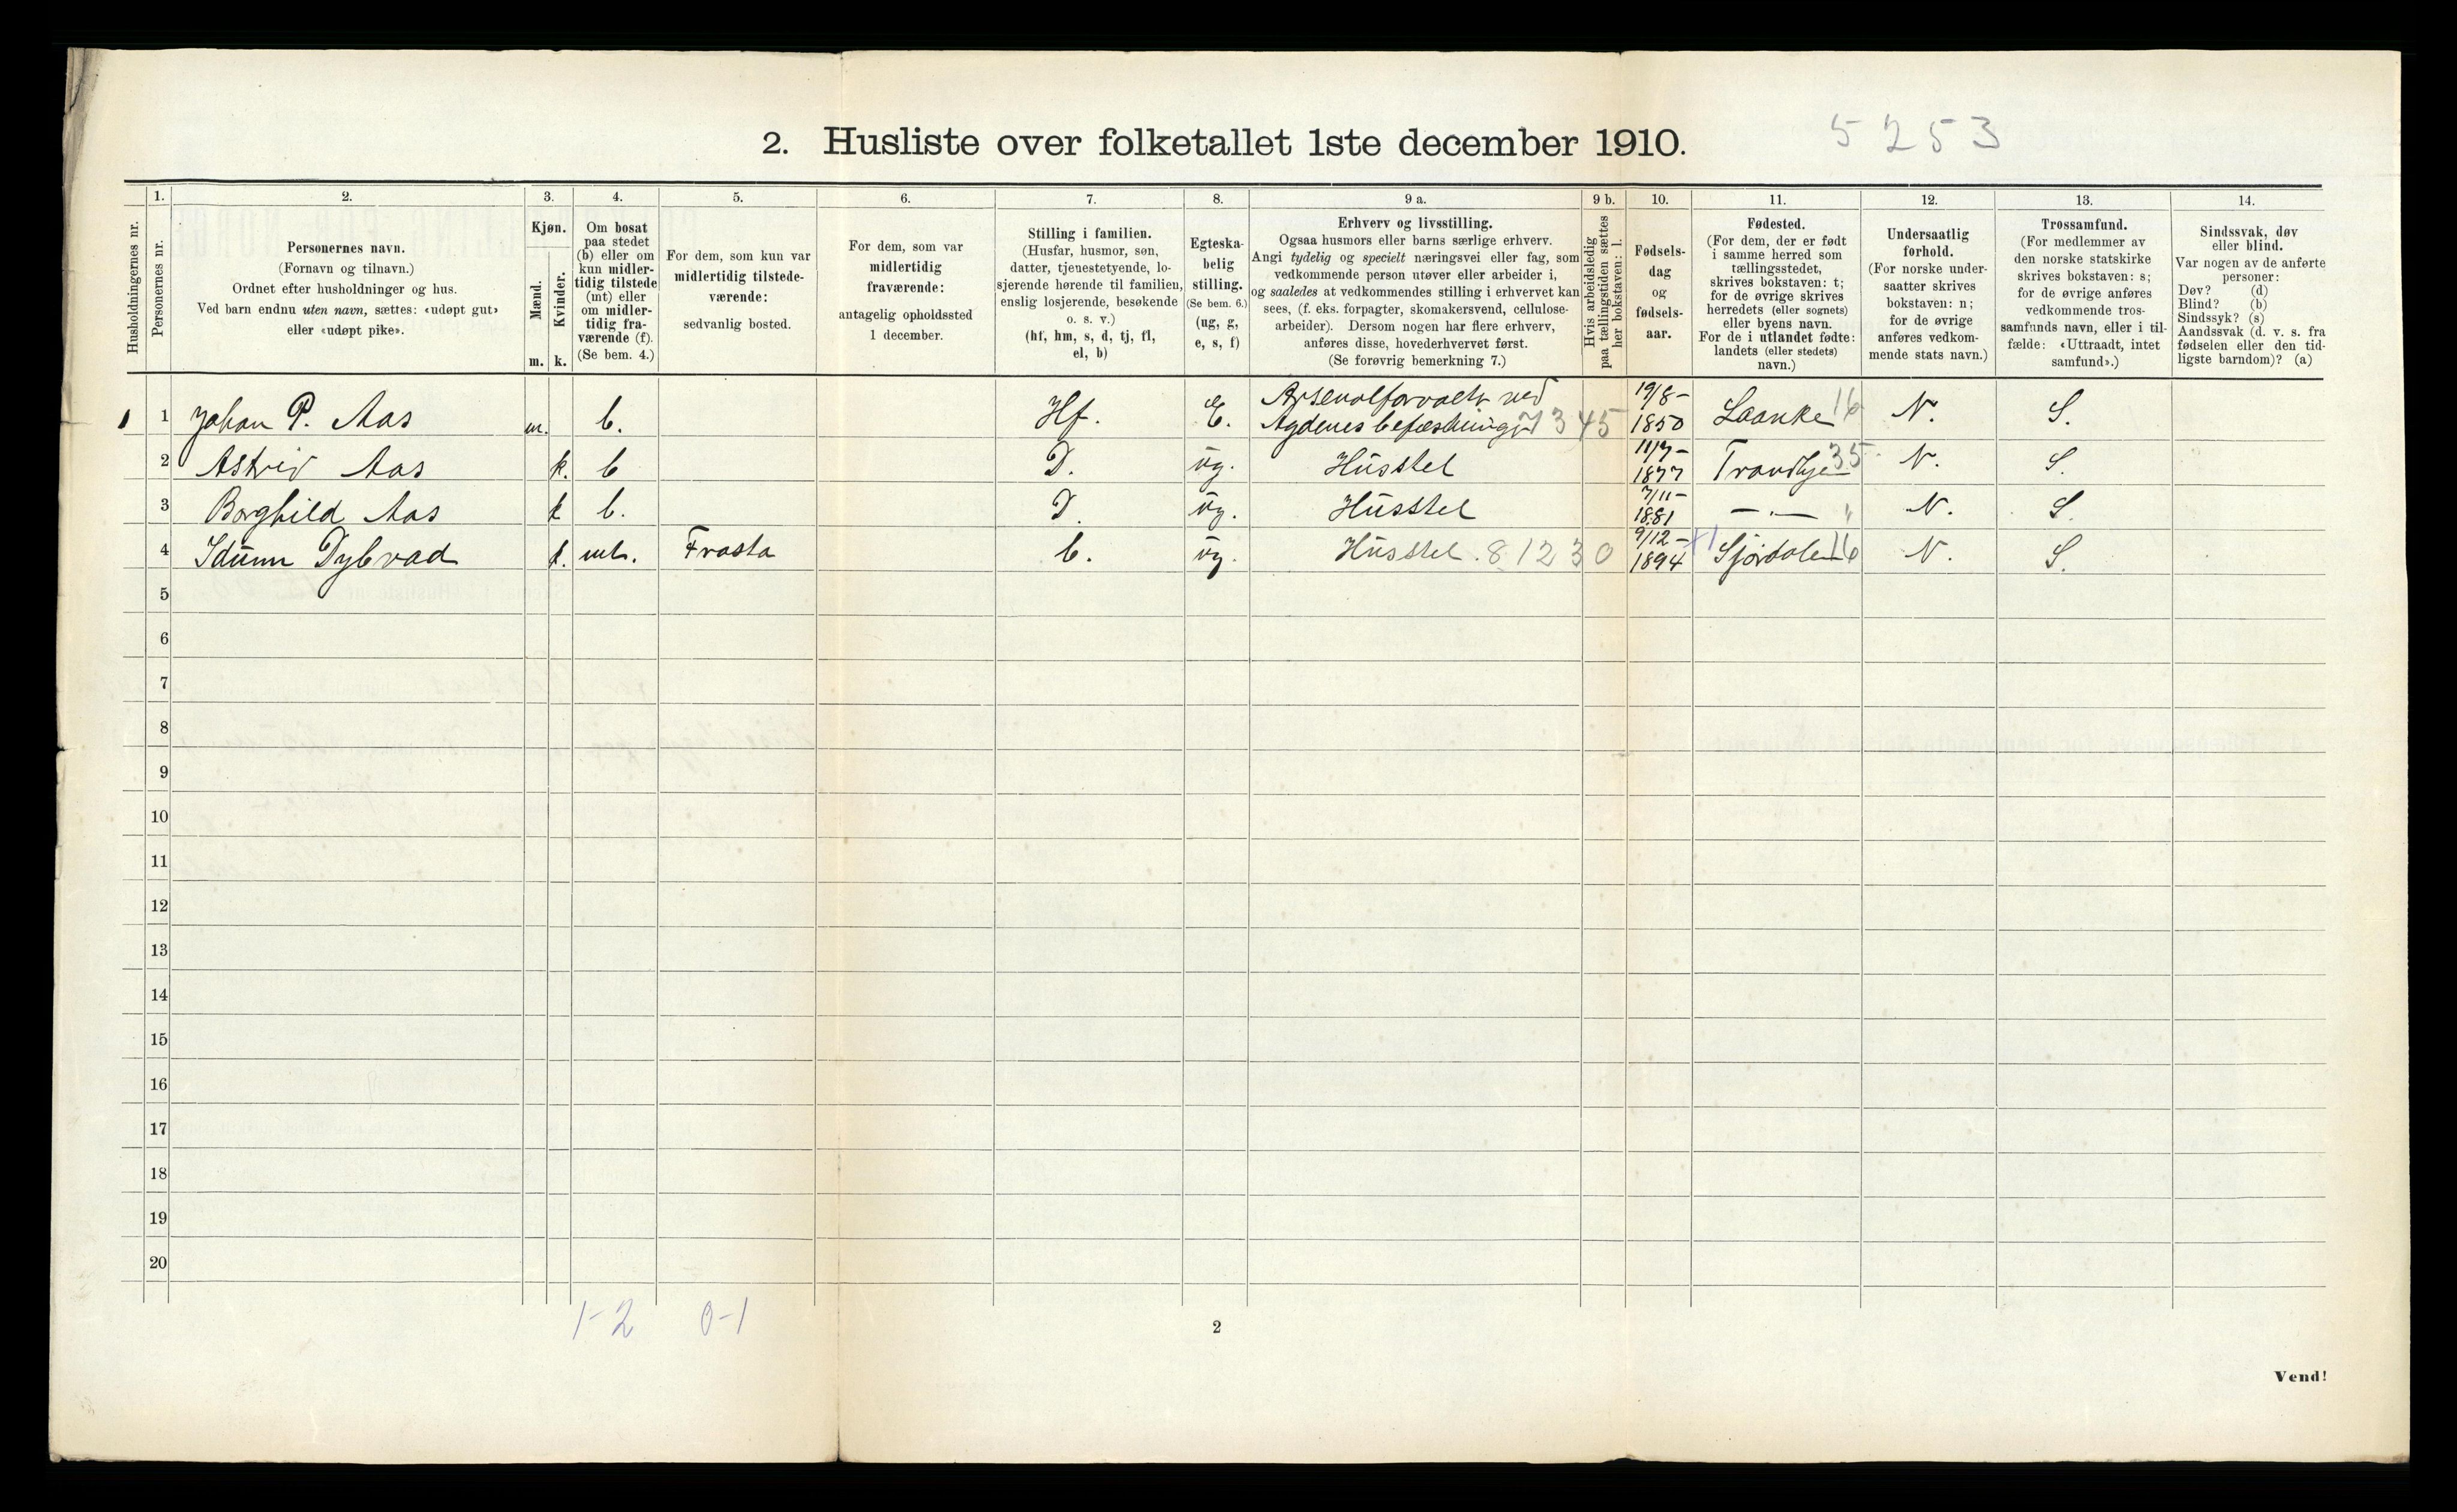 2. Husliste over folketallet 1ste december 1910.
5253
Husholdningernes nr.
1.
Personernes nr.
2.
Personernes navn.
(Fornavn og tilnavn.)
Ordnet efter husholdninger og hus.
Ved barn endnu uten navn, sættes: «udøpt gut»
eller «udøpt pike».
3.
Kjøn.
Mænd.
Kvinder.
m. k.
4.
Om bosat
paa stedet
(b) eller om
kun midler-
tidig tilstede
(mt) eller
om midler-
tidig fra-
værende (f).
(Se bem. 4.)
5.
For dem, som kun var
midlertidig tilstede-
værende:
sedvanlig bosted.
6.
For dem, som var
midlertidig
fraværende:
antagelig opholdssted
1 december.
7.
Stilling i familien.
(Husfar, husmor, søn,
datter, tjenestetyende, lo-
sjerende hørende til familien,
enslig losjerende, besøkende
o. s. v.)
(hf, hm, s, d, tj, fl,
el, b)
8.
Egteska-
belig
stilling.
(Se bem. 6.)
(ug, g,
e, s, f)
9 a.
Erhverv og livsstilling.
Ogsaa husmors eller barns særlige erhverv.
Angi tydelig og specielt næringsvei eller fag, som
vedkommende person utøver eller arbeider i,
og saaledes at vedkommendes stilling i erhvervet kan
sees, (f. eks. forpagter, skomakersvend, cellulose-
arbeider). Dersom nogen har flere erhverv,
anføres disse, hovederhvervet først.
(Se forøvrig bemerkning 7.)
9 b.
Hvis arbeidsledig
paa tællingstiden sættes
her bokstaven: l.
10.
Fødsels-
dag
og
fødsels-
aar.
11.
Fødested.
(For dem, der er født
i samme herred som
tællingsstedet,
skrives bokstaven: t;
for de øvrige skrives
herredets (eller sognets)
eller byens navn.
For de i utlandet fødte:
landets (eller stedets)
navn.)
12.
Undersaatlig
forhold.
(For norske under-
saatter skrives
bokstaven: n;
for de øvrige
anføres vedkom-
mende stats navn.)
13.
Trossamfund.
(For medlemmer av
den norske statskirke
skrives bokstaven: s;
for de øvrige anføres
vedkommende tros-
samfunds navn, eller i til-
fælde: «Uttraadt, intet
samfund».)
14.
Sindssvak, døv
eller blind.
Var nogen av de anførte
personer:
Døv? (d)
Blind? (b)
Sindssyk? (s)
Aandssvak (d. v. s. fra
fødselen eller den tid-
ligste barndom)? (a)
1 1 Johan P. Aas m. b. Hf. E. Arsenalforvalter ved Agdenes befæstninger 7345 19/8- 1850 Laanke 16 N. S.
2 Astrid Aas k. b D. ug. Husstel 11/7- 1877 Trondhjem 35 N. S.
3 Borghild Aas k b. D. ug. Husstel 7/11- 1881 — " — " N. S.
4 Idunn Dybvad k. mt. Frosta b. ug. Husstel. 81230 9/12- 1894 +1 Stjørdalen 16 N. S.
5
6
7
8
9
10
11
12
13
14
15
16
17
18
19
20
1-2 0-1
2
Vend!